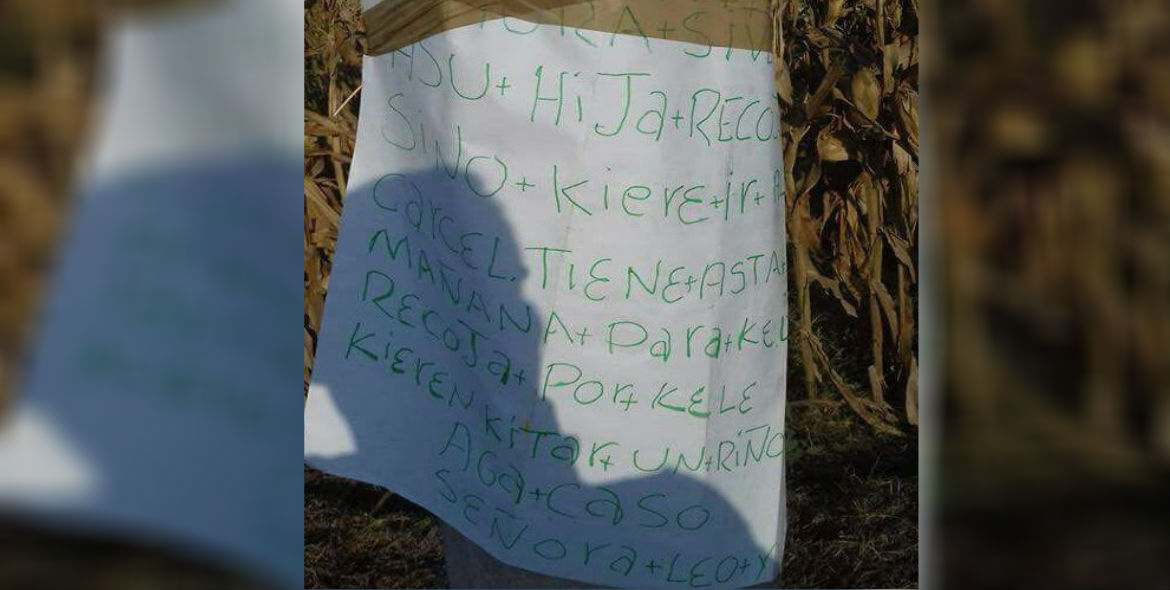 ORA+SIV
ASU+HiJa+RECO
SiNO+Kiere+ir+A
CarCEL.TiENE+ASTA+
MAÑANA+Para+KEL
RECOJa+Por+KELE
KiErEN KiTar+UN+RiÑO
AGa+CaSO
SEÑora+LEO+Y